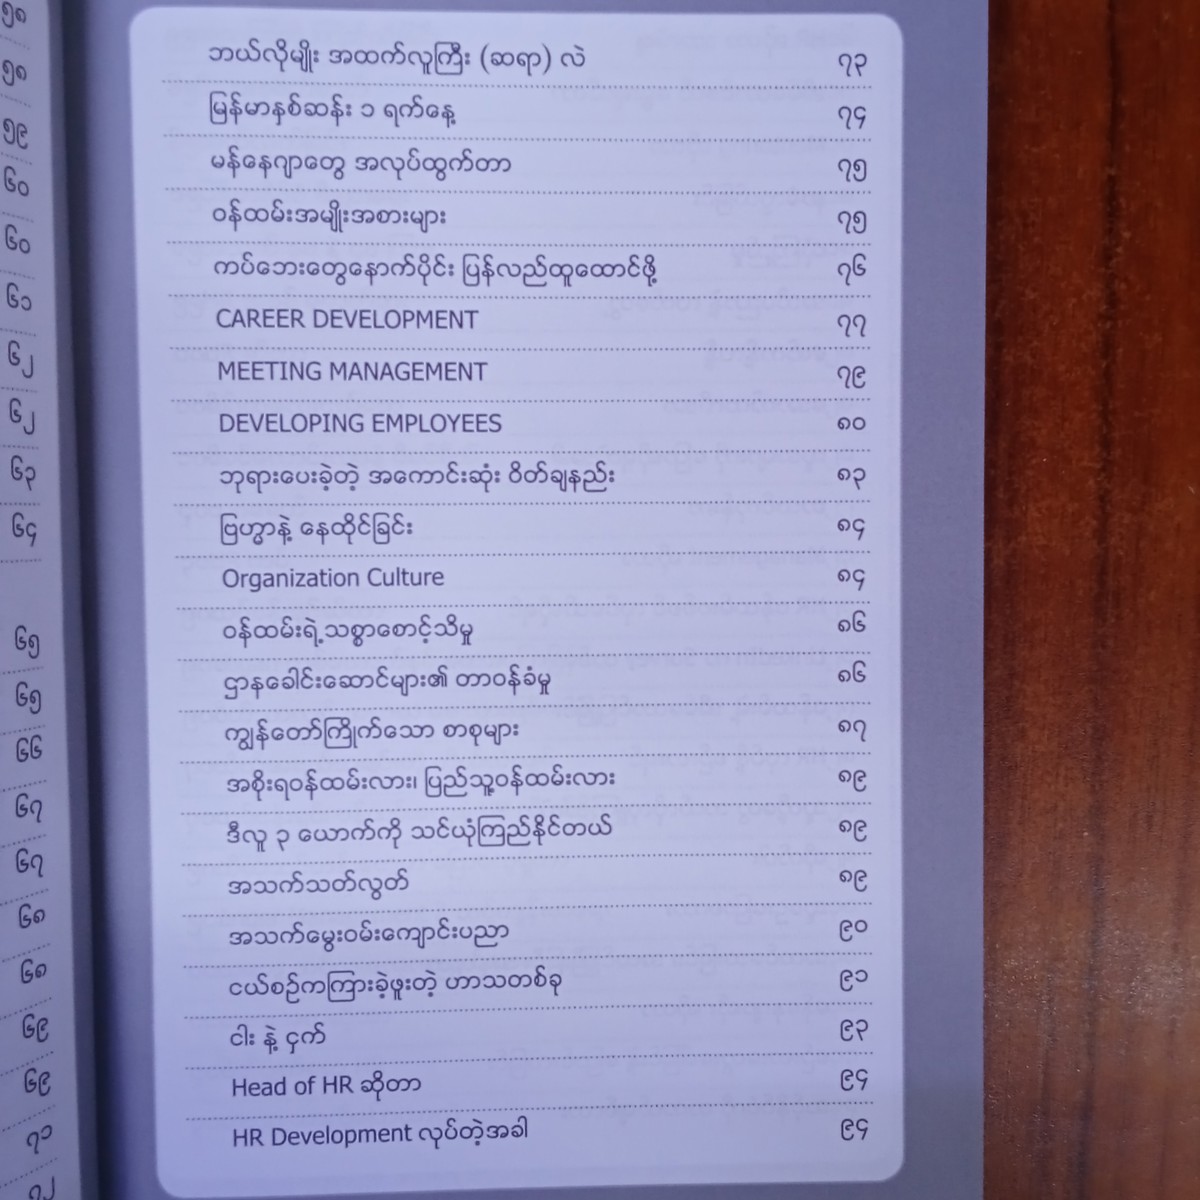 ၅၈
၅၈
၅၉
၆၀
၆၀
၆၁
၆၂
၆၂
၆၃
၆၄
၆၅
၆၅
၆၆
၆၇
၆၇
၆၈
၆၈
၆၉
၆၉
၇၁
၇၂
ဘယ်လိုမျိုး အထက်လူကြီး (ဆရာ) လဲ ၇၃
မြန်မာနှစ်ဆန်း ၁ ရက်နေ့ ၇၄
မန်နေဂျာတွေ အလုပ်ထွက်တာ ၇၅
ဝန်ထမ်းအမျိုးအစားများ ၇၅
ကပ်ဘေးတွေနောက်ပိုင်း ပြန်လည်ထူထောင်ဖို့ ၇၆
CAREER DEVELOPMENT ၇၇
MEETING MANAGEMENT ၇၉
DEVELOPING EMPLOYEES ၈၀
ဘုရားပေးခဲ့တဲ့ အကောင်းဆုံး ဝိတ်ချနည်း ၈၃
ဗြဟ္မာနဲ့ နေထိုင်ခြင်း ၈၄
Organization Culture ၈၄
ဝန်ထမ်းရဲ့သစ္စာစောင့်သိမှု ၈၆
ဌာနခေါင်းဆောင်များ၏ တာဝန်ခံမှု ၈၆
ကျွန်တော်ကြိုက်သော စာစုများ ၈၇
အစိုးရဝန်ထမ်းလား၊ ပြည်သူ့ဝန်ထမ်းလား ၈၉
ဒီလူ ၃ ယောက်ကို သင်ယုံကြည်နိုင်တယ် ၈၉
အသက်သတ်လွတ် ၈၉
အသက်မွေးဝမ်းကျောင်းပညာ ၉၀
ငယ်စဉ်ကကြားခဲ့ဖူးတဲ့ ဟာသတစ်ခု ၉၁
ငါး နဲ့ ငှက် ၉၃
Head of HR ဆိုတာ ၉၄
HR Development လုပ်တဲ့အခါ ၉၄